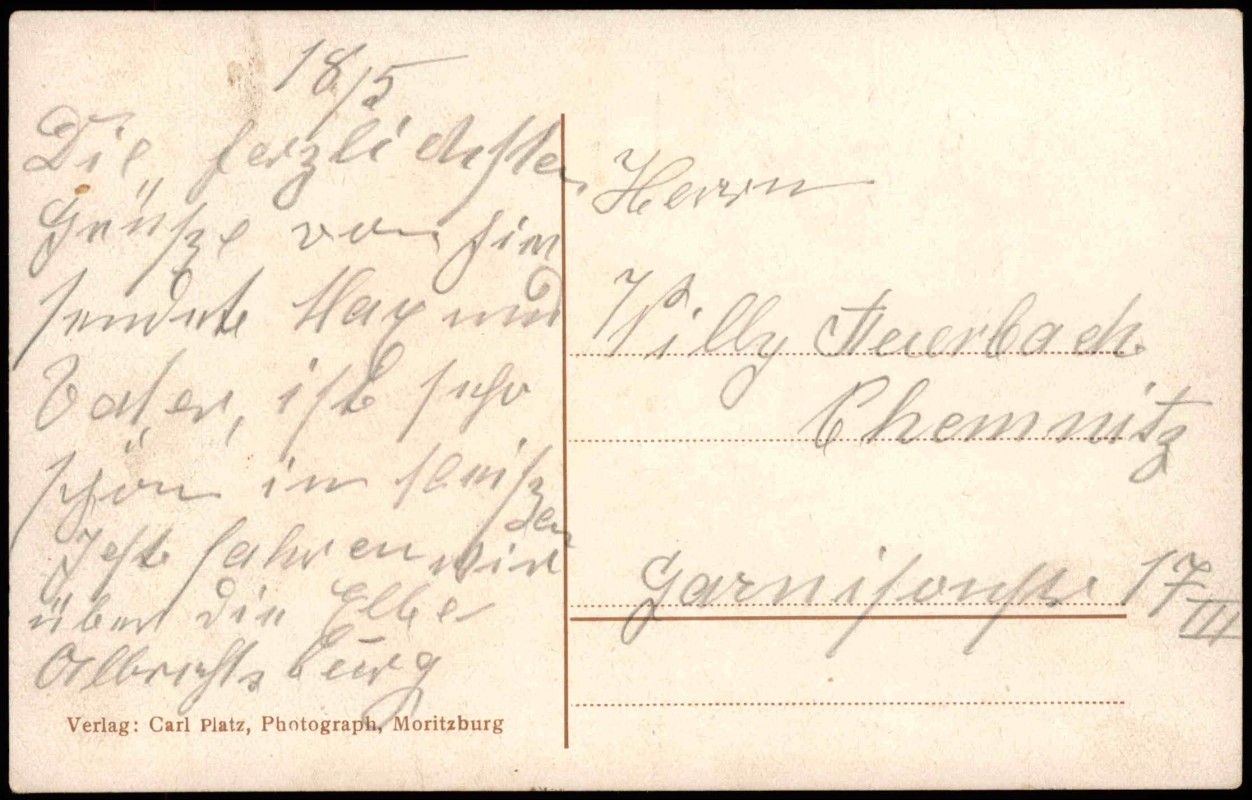 18/5
Die herzlichsten
Grüße von hier
sendet Max und
Vater, ist sehr
schön in Meißen
Jetzt fahren wir
über die Elbe
Albrichtsburg
Verlag: Carl Platz, Photograph, Moritzburg
Herrn
Willy Feuerbach
Chemnitz
Garnisonstr 17 III